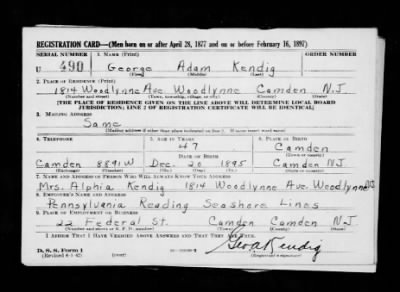 REGISTRATION CARD—(Men born on or after April 28, 1877 and on or before February 16, 1897)
SERIAL NUMBER 1. NAME (Print) ORDER NUMBER
U 490 George Adam Kendig
(First) (Middle) (Last)
2. PLACE OF RESIDENCE (Print)
1814 Woodlynne Ave. Woodlynne Camden N.J.
(Number and street) (Town, township, village, or city) (County) (State)
[THE PLACE OF RESIDENCE GIVEN ON THE LINE ABOVE WILL DETERMINE LOCAL BOARD
JURISDICTION; LINE 2 OF REGISTRATION CERTIFICATE WILL BE IDENTICAL]
3. MAILING ADDRESS
Same
[Mailing address if other than place indicated on line 2. If same insert word same]
4. TELEPHONE 5. AGE IN YEARS 6. PLACE OF BIRTH
47 Camden
DATE OF BIRTH (Town or county)
Camden 8891W Dec. 20 1895 Camden N.J.
(Exchange) (Number) (Mo.) (Day) (Yr.) (State or country)
7. NAME AND ADDRESS OF PERSON WHO WILL ALWAYS KNOW YOUR ADDRESS
Mrs. Alphia Kendig 1814 Woodlynne Ave. Woodlynne NJ
8. EMPLOYER'S NAME AND ADDRESS
Pennsylvania Reading Seashore Lines
9. PLACE OF EMPLOYMENT OR BUSINESS
22 Federal St. Camden Camden N.J.
(Number and street or R. F. D. number) (Town) (County) (State)
I AFFIRM THAT I HAVE VERIFIED ABOVE ANSWERS AND THAT THEY ARE TRUE.
D. S. S. Form 1
(Revised 4-1-42) (over) Geo A Kendig
(Registrant's signature)